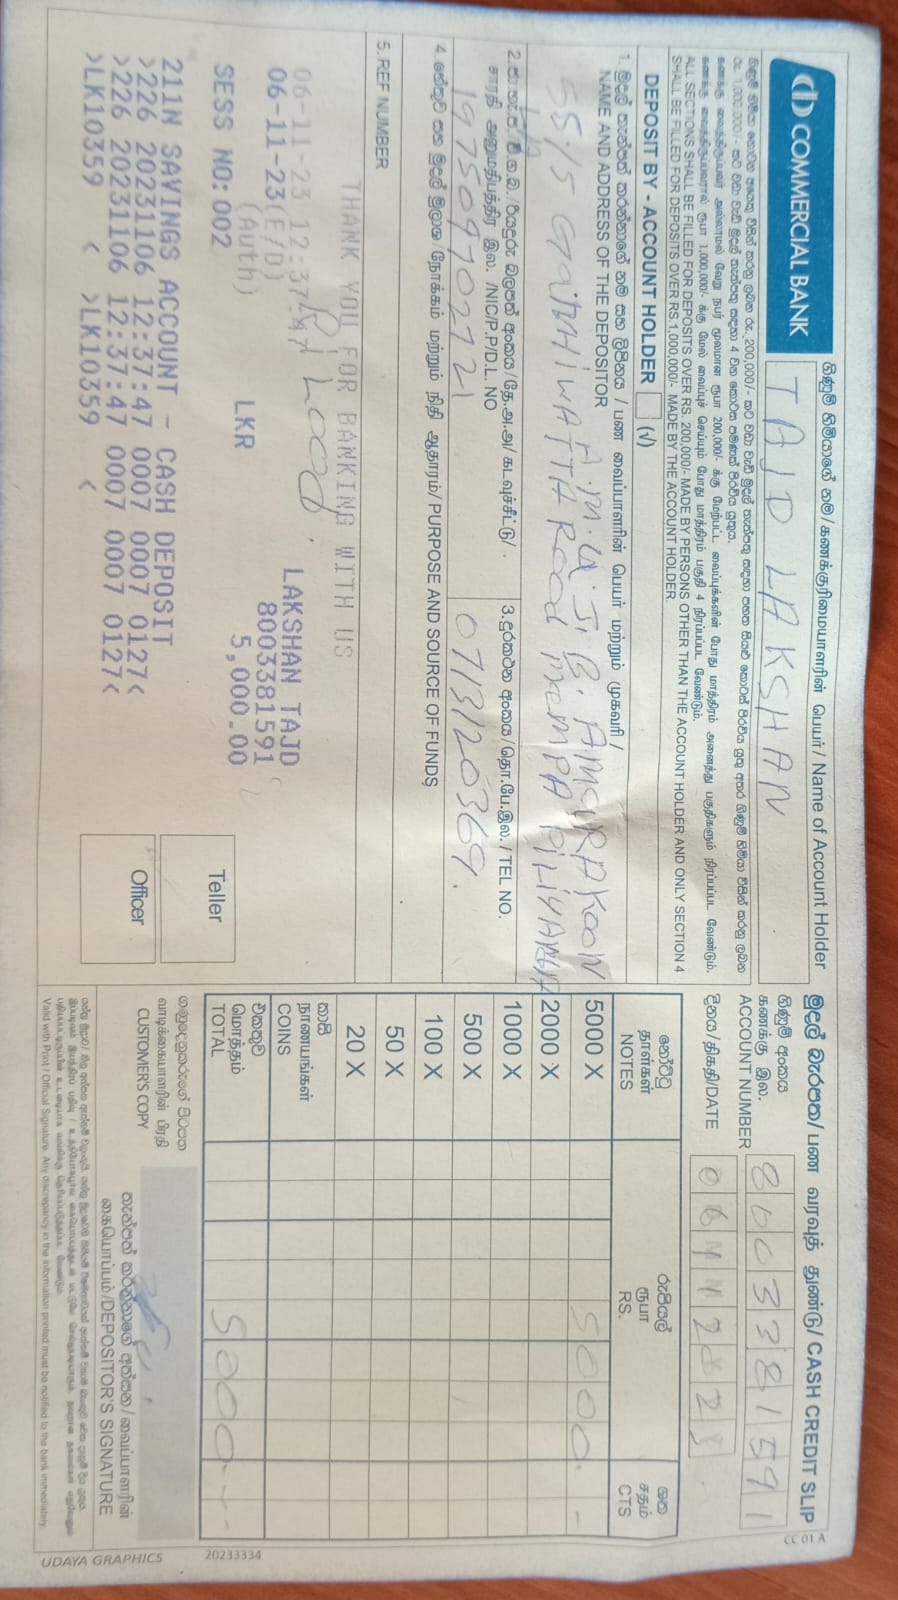 COMMERCIAL BANK
ගිණුම් හිමියාගේ නම / கணக்குரிமையாளரின் பெயர் / Name of Account Holder
TAJD LAKSHAN
ALL SECTIONS SHALL BE FILLED FOR DEPOSITS OVER RS. 200,000/- MADE BY PERSONS OTHER THAN THE ACCOUNT HOLDER AND ONLY SECTION 4
SHALL BE FILLED FOR DEPOSITS OVER RS.1,000,000/- MADE BY THE ACCOUNT HOLDER.
DEPOSIT BY - ACCOUNT HOLDER (√)
1. මුදල් තැන්පත් කරන්නාගේ නම සහ ලිපිනය / பண வைப்பாளரின் பெயர் மற்றும் முகவரி /
NAME AND ADDRESS OF THE DEPOSITOR
55/5 ROAD
/NIC/P.P/D.L. NO
197509702721
3. දුරකථන අංකය / தொ.பே.இல. / TEL NO.
0713120369.
/ PURPOSE AND SOURCE OF FUNDS
5. REF NUMBER
THANK YOU FOR BANKING WITH US
06-11-23 12:37:47
06-11-23(E/D)
(Auth)
SESS NO:002 LKR
LAKSHAN TAJD
8003381591
5,000.00
211N SAVINGS ACCOUNT - CASH DEPOSIT
>226 20231106 12:37:47 0007 0007 0127<
>226 20231106 12:37:47 0007 0007 0127<
>LK10359 < >LK10359 <
Teller
Officer
මුදල් බැරපත / பண வரவுத் துண்டு / CASH CREDIT SLIP
CC 01 A
ගිණුම් අංකය
கணக்கு இல.
ACCOUNT NUMBER
8003381591
දිනය / திகதி / DATE
06112023
නෝට්ටු
தாள்கள்
NOTES
රුපියල්
ரூபா
RS.
ශත
சதம்
CTS
5000 X 5000 -
2000 X
1000 X
500 X
100 X
50 X
20 X
කාසි
நாணயங்கள்
COINS
එකතුව
மொத்தம்
TOTAL
5000 - -
ගනුදෙනුකරුගේ පිටපත
வாடிக்கையாளரின் பிரதி
CUSTOMER'S COPY
තැන්පත් කරන්නාගේ අත්සන / வைப்பாளரின்
கையொப்பம் / DEPOSITOR'S SIGNATURE
Valid with Print / Official Signature. Any discrepancy in the information printed must be notified to the bank immediately
UDAYA GRAPHICS
20233334